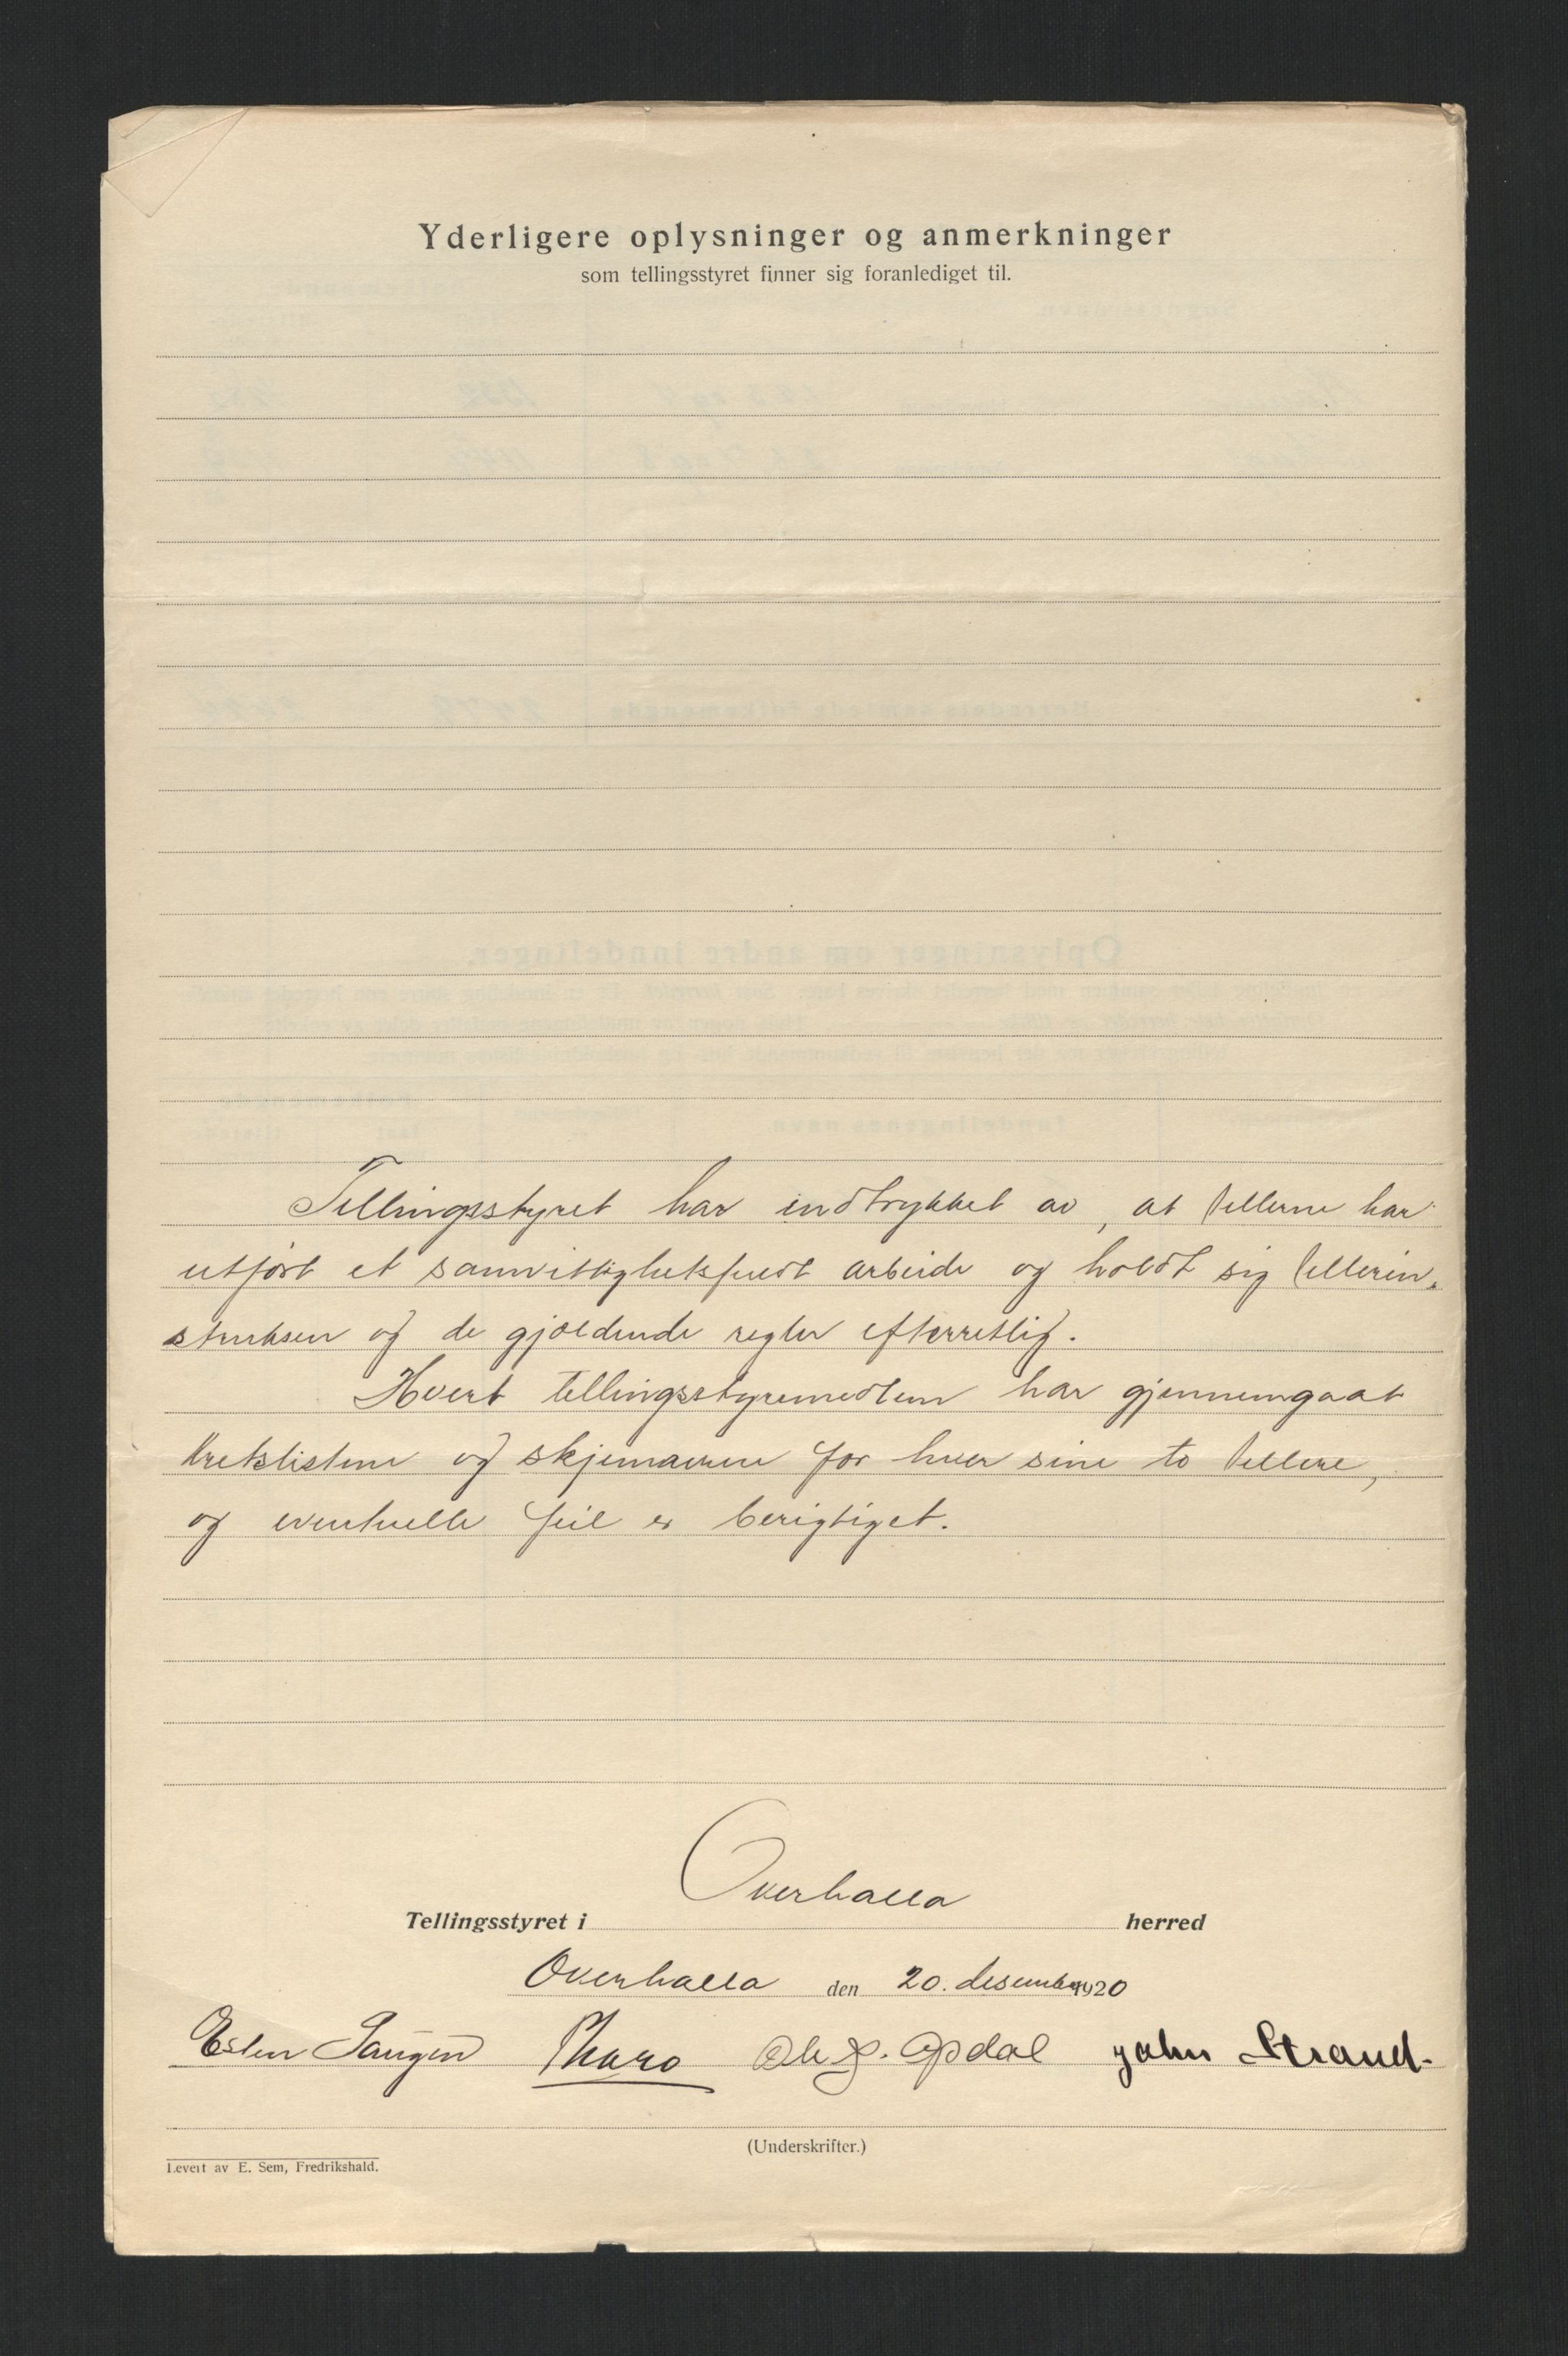 Yderligere oplysninger og anmerkninger
som tellingsstyret finner sig foranlediget til.
Tellingsstyret har indtrykket av, at tellerne har
utført et samvittighetsfuldt arbeide og holdt sig tellerin-
struksen og de gjældende regler efterretlig.
Hvert tellingsstyremedlem har gjennemgaat
kretslistene og skjemaerne for hver sine to tellere,
og eventuelle feil er berigtiget.
Overhalla
Tellingsstyret i herred
Overhalla den 20. desember 1920
Esten Saugen Ole P. Opdal John Strand.
(Underskrifter.)
Levert av E. Sem, Fredrikshald.